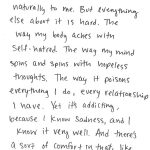 naturally to me. But everything
else about it is hard. The
way my body aches with
self-hatred. The way my mind
spins and spins with hopeless
thoughts. The way it poisons
everything I do, every relationship
I have. Yet it's addicting,
because I know sadness, and I
know it very well. And there's
a sort of comfort in that, like